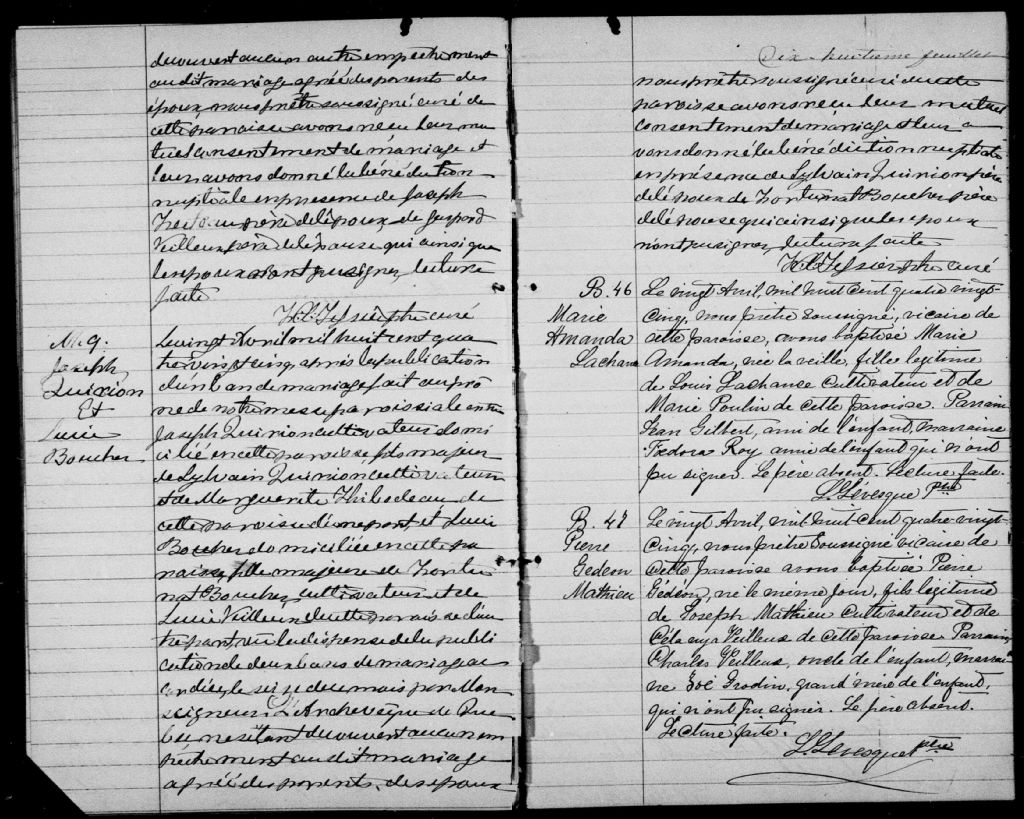 découvert aucun autre empêchement
au dit mariage agréé des parents des
époux, nous prêtre soussigné curé de
cette paroisse avons reçu leur mu
tuel consentement de mariage et
leur avons donné la bénédiction
nuptiale en présence de Joseph
père de l'époux, de Gaspard
Veilleux père de l'épouse, qui ainsi que
les époux n'ont pu signer, lecture
faite
Ptre curé
M. 9.
Joseph
Quirion
Et
Lucie
Boucher
Le vingt Avril mil huit cent qua
tre vingt cinq, après la publication
d'un ban de mariage fait au prô
ne de notre messe paroissiale entre
Joseph Quirion cultivateur domi
cilié en cette paroisse fils majeur
de Sylvain Quirion cultivateur
et de Marguerite Thibodeau de
cette paroisse d'une part, et Lucie
Boucher domiciliée en cette pa
roisse, fille majeure de Fortu
nat Boucher, cultivateur et de
Lucie Veilleux de cette paroisse d'au
tre part, vu la dispense de la publi
cation de deux bans de mariage ac
cordée le seize du mois par Mon
seigneur L'Archevêque de Qué
bec ne s'étant découvert aucun em
pêchement au dit mariage
agréé des parents, des époux
Dix-huitième feuillet
nous prêtre soussigné curé de cette
paroisse avons reçu leur mutuel
consentement de mariage et leur a
vons donné la bénédiction nuptiale
en présence de Sylvain Quirion père
de l'époux de Fortunat Boucher père
de l'épouse qui ainsi que les époux
n'ont pu signer, lecture faite
Ptre curé
B. 46
Marie
Amanda
Lachance
Le vingt Avril, mil huit cent quatre vingt-
cinq, nous prêtre soussigné, vicaire de
cette paroisse, avons baptisé Marie
Amanda, née la veille, fille légitime
de Louis Lachance cultivateur et de
Marie Poulin de cette paroisse. Parrain
Jean Gilbert, ami de l'enfant, marraine
Fédora Roy amie de l'enfant qui n'ont
pu signer. Le père absent. Lecture faite.
L. Lévesque Ptre
B. 47
Pierre
Gédéon
Mathieu
Le vingt Avril, mil huit cent quatre-vingt-
cinq, nous prêtre soussigné vicaire de
cette paroisse avons baptisé Pierre
Gédéon, né le même jour, fils légitime
de Joseph Mathieu cultivateur et de
Veilleux de cette paroisse Parrain
Charles Veilleux, oncle de l'enfant, marrai
ne Zoé Grodin, grand'mère de l'enfant,
qui n'ont pu signer. Le père absent.
Lecture faite.
L. Lévesque ptre